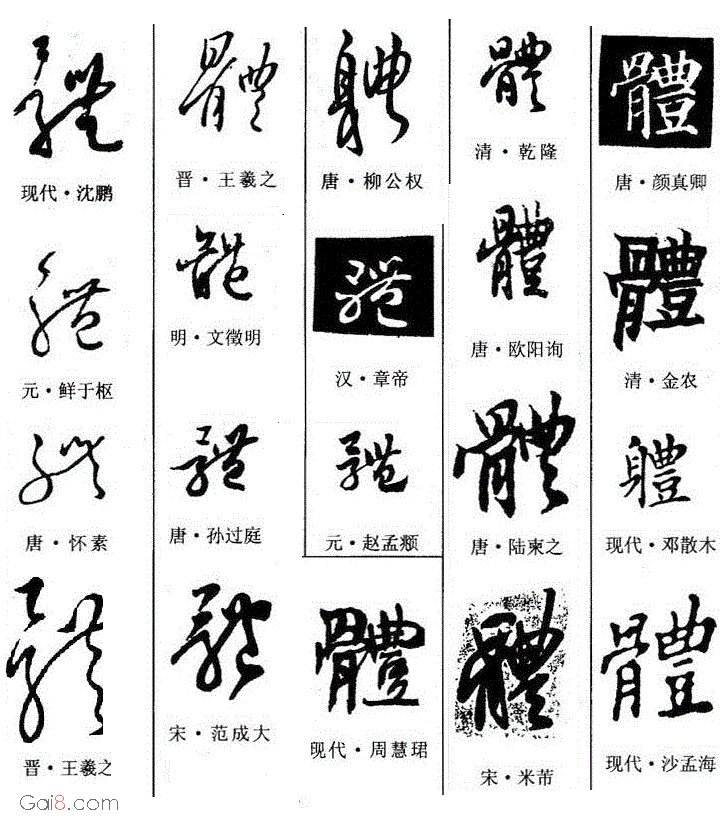 體
唐·颜真卿
體
清·金农
軆
现代·邓散木
體
现代·沙孟海
體
清·乾隆
體
唐·欧阳询
體
唐·陆柬之
體
宋·米芾
軆
唐·柳公权
體
汉·章帝
體
元·赵孟頫
體
现代·周慧珺
體
晋·王羲之
體
明·文徵明
體
唐·孙过庭
體
宋·范成大
體
现代·沈鹏
體
元·鲜于枢
體
唐·怀素
體
晋·王羲之
Gai8.com